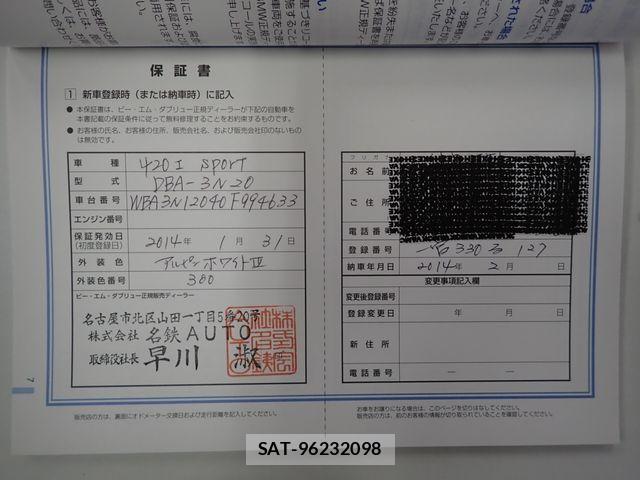 保証書
1 新車登録時（または納車時）に記入
● 本保証書は、ビー・エム・ダブリュー正規ディーラーが下記の自動車を
本書記載の保証条件に従って無料修理することをお約束するものです。
● お客様の氏名、お客様の住所、販売会社名、および販売会社印のないもの
は無効です。
車種 420i Sport
型式 DBA-3N20
車台番号 WBA3N12040F994633
エンジン番号
保証発効日
（初度登録日） 2014年 1月 31日
外装色 アルピンホワイトIII
外装色番号 300
ビー・エム・ダブリュー正規販売ディーラー
名古屋市北区山田一丁目5番20号
株式会社 名鉄AUTO
取締役社長 早川 淑
7
販売店の方は、裏面にオドメーター交換日および走行距離を記入してください。
フリガナ
お名前
ご住所
電話番号
登録番号 330 127
納車年月日 2014年 2月 日
変更事項記入欄
変更後登録番号
登録変更日 年 月 日
新住所
電話番号 ― ―
お車をお譲りになる場合は、このページを切りはなしてください。
販売店の方は、前のお客様の情報が切り取られていることを確認してください。
SAT-96232098